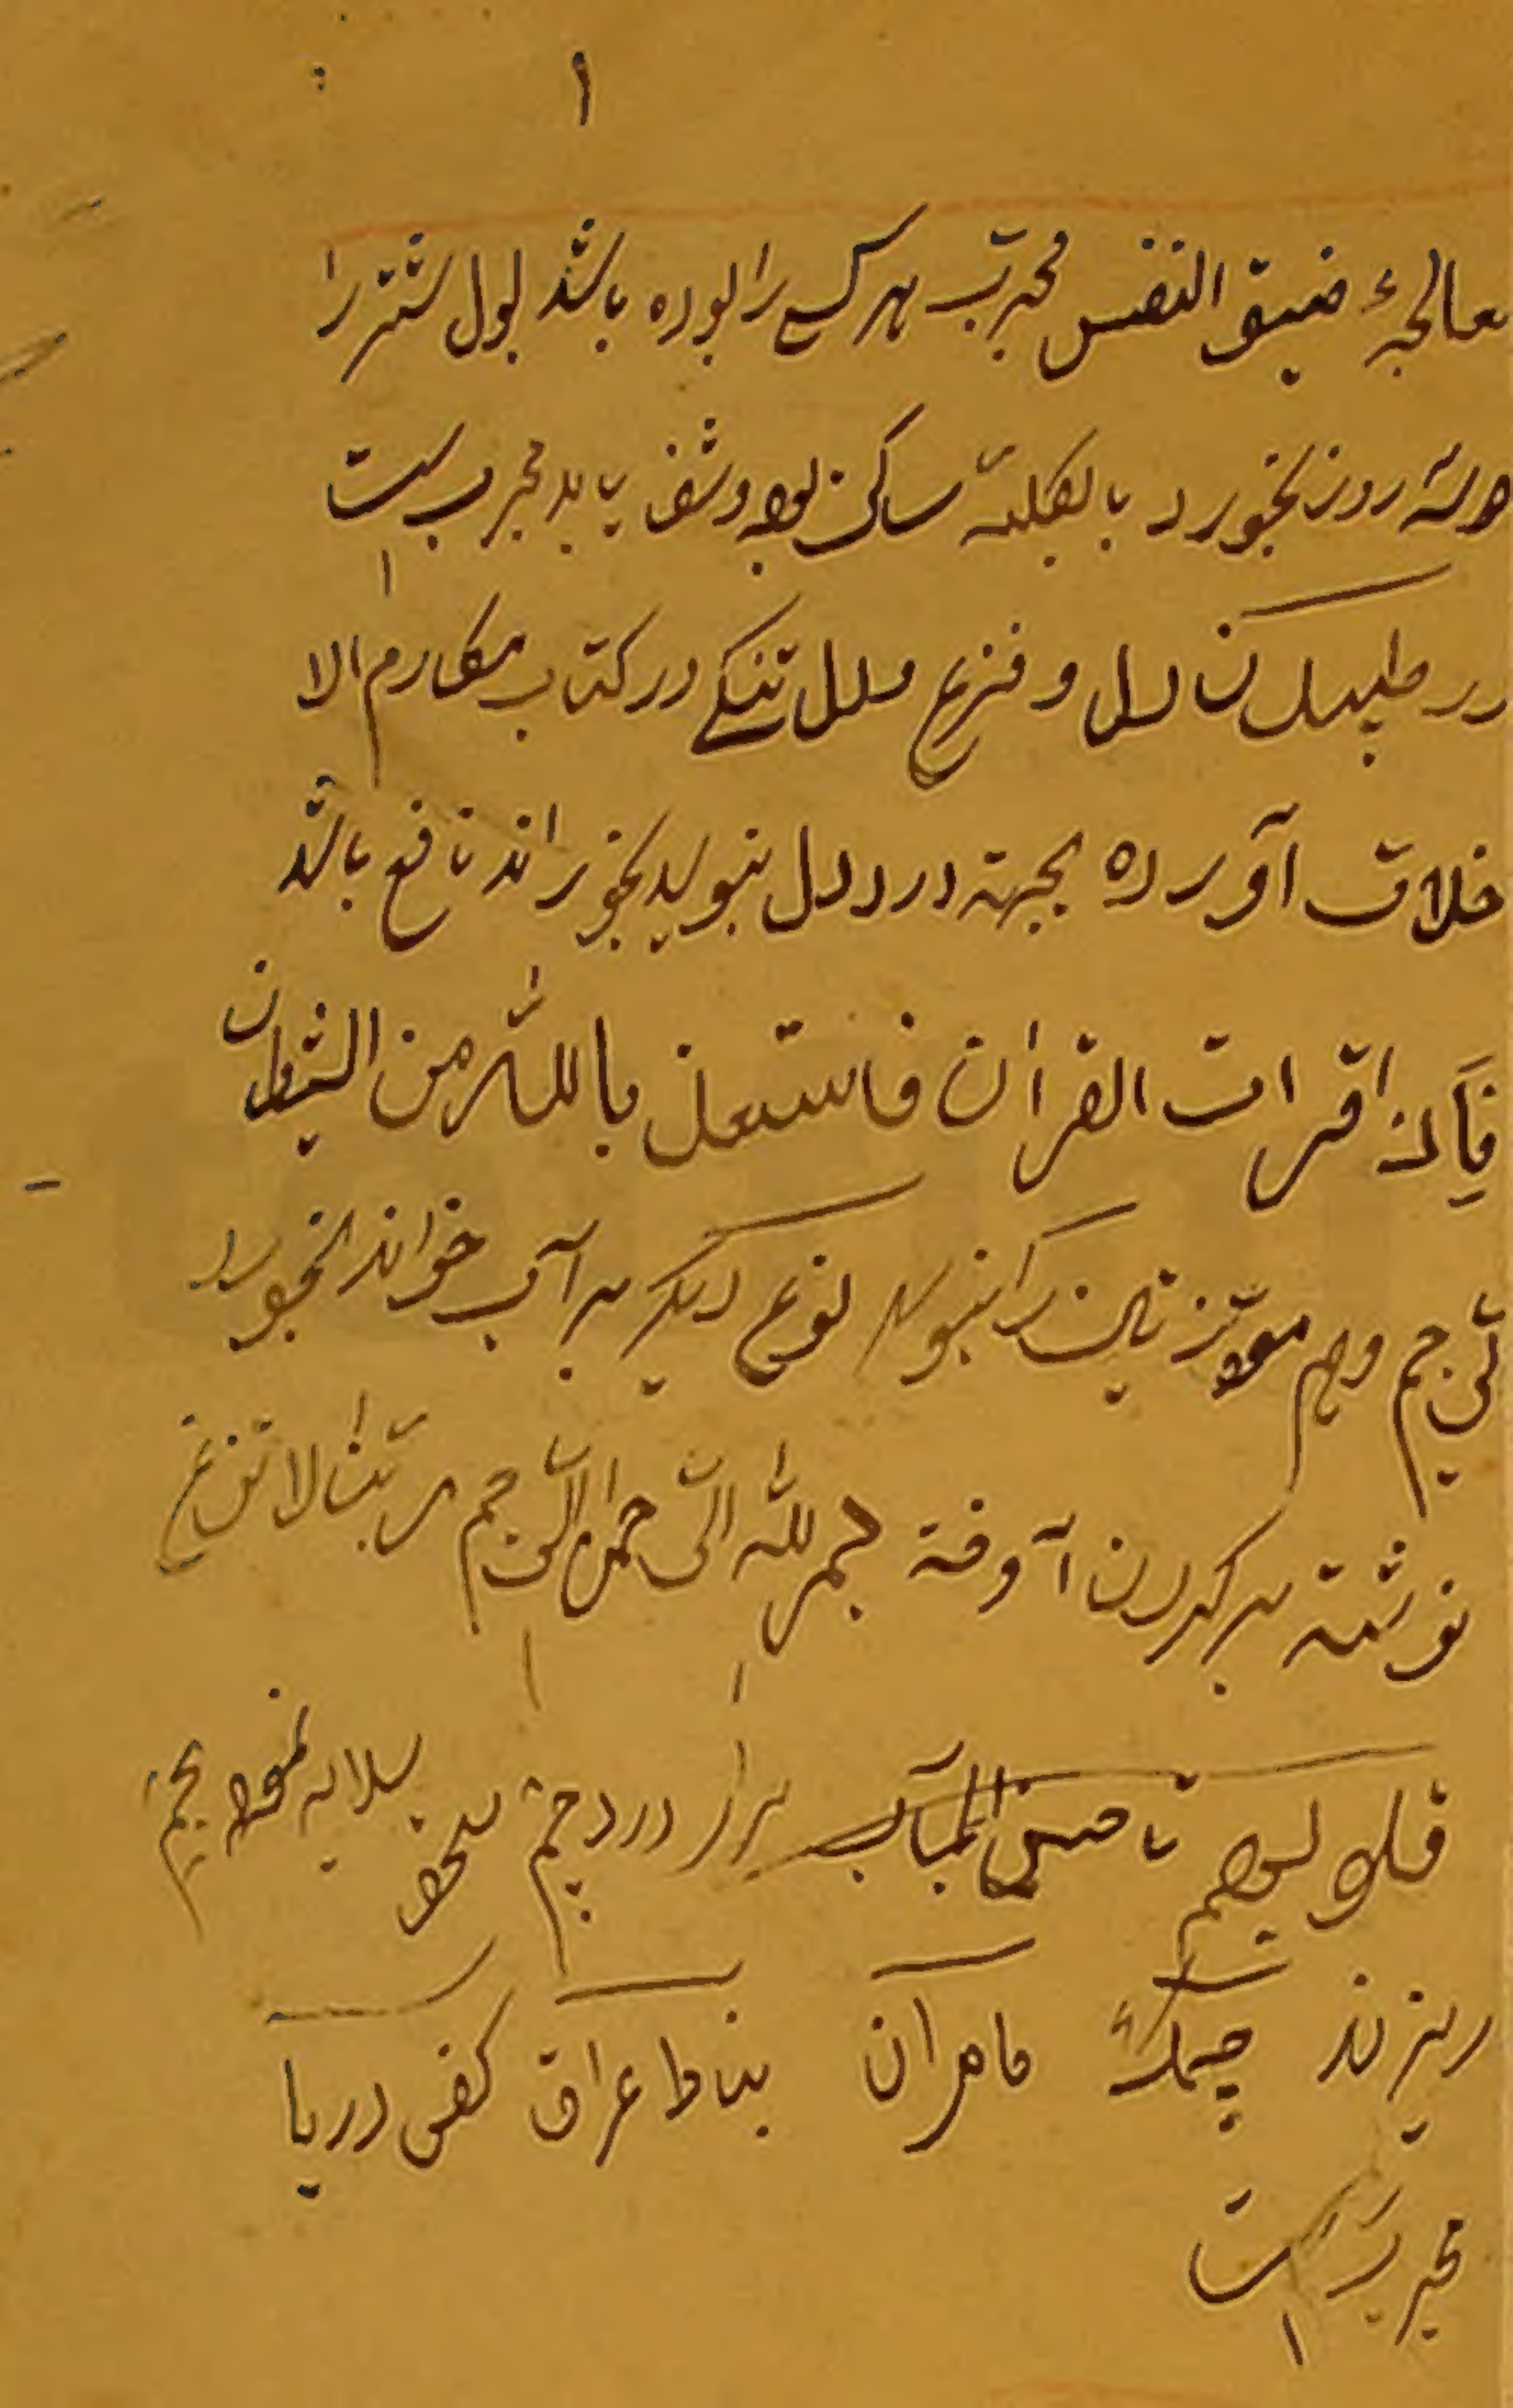 ۱
معالجهٔ ضیق النفس مجرب هر کسی را بوده باشد بول شتر را
دو سه روز بخورد بالکلیه ساکن بود و شفا یابد مجرب است
در طپیدن دل و فزع دل تنگی در کتاب مکارم الا
خلاق آورده بجهته درد دل بنویسد بخوراند نافع باشد
فاذا قرات القران فاستعذ بالله من الشیطان
الرجیم و هم معوذتین را بنویسد نوع دیگر بر آب خواند بخورد
نوشته بر کردن آوخته بسم الله الرحمن الرحیم ربنا لا تزغ
قلوبهم تا حسن المآب برای درد چشم سلایه نموده بچشم
ریزند چمک ماهران بناط عراق کفی دریا
مجرب است